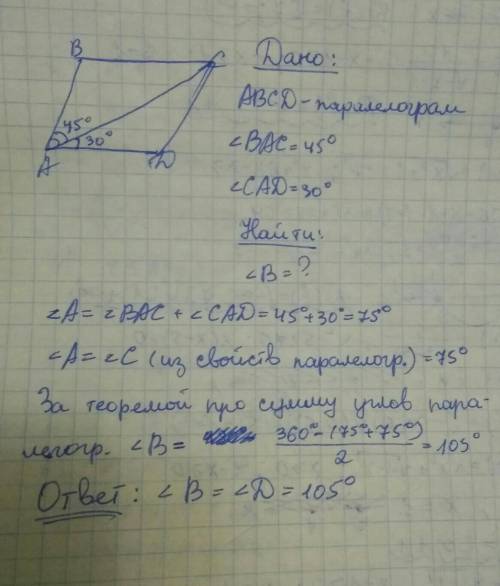 B
C
45°
30°
A
D
Дано:
ABCD - паралелограм
∠BAC = 45°
∠CAD = 30°
Найти:
∠B = ?
∠A = ∠BAC + ∠CAD = 45° + 30° = 75°
∠A = ∠C (из свойств паралелогр.) = 75°
За теоремой про сумму углов пара-
лелогр. ∠B = 360° - (75° + 75°) / 2 = 105°
Ответ: ∠B = ∠D = 105°